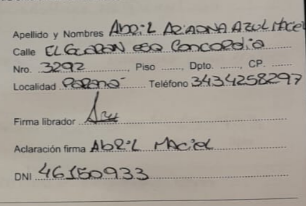 Apellido y Nombres Abril Ariadna Azul Maciel
Calle El Guardan esq Concordia
Nro. 3292 Piso Dpto. CP.
Localidad Paraná Teléfono 3434258297
Firma librador
Aclaración firma Abril Maciel
DNI 46150933